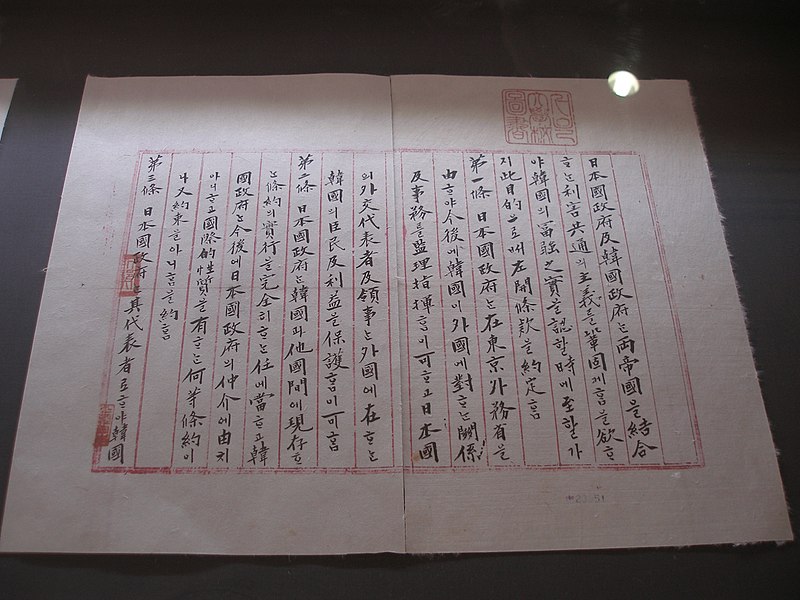 日本國政府及韓國政府는兩帝國을結合
ᄒᆞ는利害共通의主義를鞏固게홈을欲ᄒᆞ
야韓國의富强之實을認할時에至할가
지此目的으로써左開條款을約定홈
第一條 日本國政府는在東京外務省을
由ᄒᆞ야今後에韓國이外國에對ᄒᆞ는關係
及事務를監理指揮홈이可ᄒᆞ고日本國
의外交代表者及領事는外國에在ᄒᆞ는
韓國의臣民及利益을保護홈이可홈
第二條 日本國政府는韓國과他國間에現存ᄒᆞ
는條約의實行을完全히ᄒᆞ는任에當ᄒᆞ고韓
國政府는今後에日本國政府의仲介에由치
아니ᄒᆞ고國際的性質을有ᄒᆞ는何等條約이
나又約束을아니홈을約홈
第三條 日本國政府는其代表者로ᄒᆞ야韓國